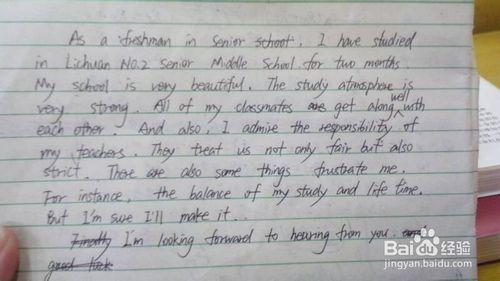 As a freshman in senior school, I have studied
in Lichuan No.2 Senior Middle School for two months.
My school is very beautiful. The study atmosphere is
very strong. All of my classmates are get along well with
each other. And also, I admire the responsibility of
my teachers. They treat us not only fair but also
strict. There are also some things frustrate me.
For instance, the balance of my study and life time.
But I'm sure I'll make it..
Finally I'm looking forward to hearing from you. and
good luck
Baidu经验
jingyan.baidu.com